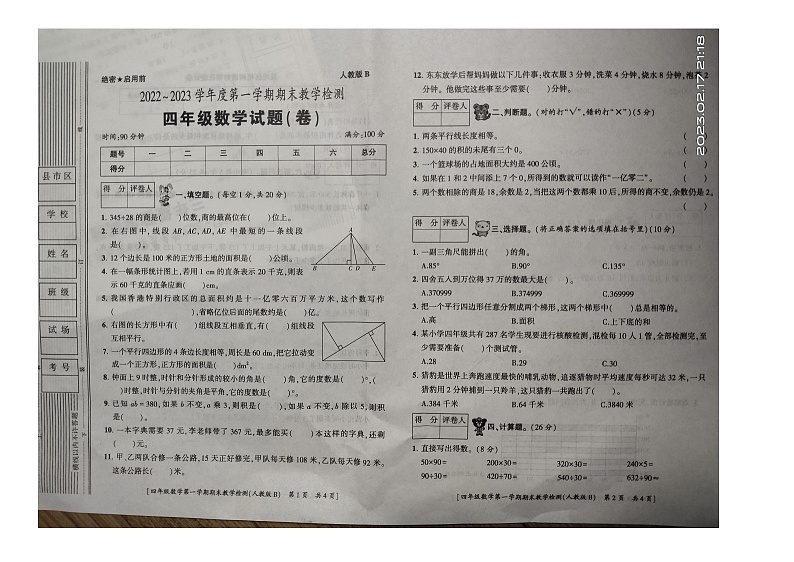 绝密★启用前
人教版 B
2022~2023 学年度第一学期期末教学检测
四年级数学试题(卷)
时间:90 分钟
满分:100 分
题号 一 二 三 四 五 六 总分
得分
县市区
学校
姓名
班级
试场
考号
得分 评卷人
一、填空题。(每空 1 分,共 20 分)
1. 345÷28 的商是( )位数,商的最高位在( )位上。
2. 在右图中,线段 AB,AC,AD,AE 中最短的一条线段
是( )。
A
B C D E
3. 12 个边长是 100 米的正方形土地的面积是( )公顷。
4. 在一幅条形统计图上,若用 1 cm 的直条表示 20 千克,则表
示 60 千克的直条应画( )cm。
5. 我国香港特别行政区的总面积约是十一亿零六百万平方米,这个数写作
( ),省略亿位后面的尾数约是( )亿。
6. 右图的长方形中有( )组线段互相垂直,有( )组线段
互相平行。
7. 一个平行四边形的 4 条边长度相等,周长是 60 dm,把它拉动变
成一个正方形,正方形的面积是( )dm²。
8. 钟面上 9 时整,时针和分针形成的较小的角是( )角,它的度数是( )°,(
)时整,时针与分针的夹角是平角,它的度数是( )°。
9. 已知 ab=380,如果 b 不变,a 乘 3,则积是( ),如果 a 不变,b 除以 5,则积
是( )。
10. 一本字典需要 37 元,李老师带了 367 元,最多能买( )本这样的字典,还剩
( )元。
11. 甲、乙两队合修一条公路,15 天正好修完,甲队每天修 108 米,乙队每天修 92 米,
这条公路长( )米。
[四年级数学第一学期期末教学检测(人教版 B) 第 1 页 共 4 页]
12. 东东放学后帮妈妈做以下几件事:收衣服 3 分钟,洗菜 4 分钟,烧水 8 分钟,泡茶 2
分钟。他做完这些事至少需要( )分钟。
得分 评卷人
二、判断题。(对的打“√”,错的打“×”)(5 分)
1. 两条平行线长度相等。 ( )
2. 150×40 的积的末尾有三个 0。 ( )
3. 一个篮球场的占地面积大约是 400 公顷。 ( )
4. 如果在 1 和 2 中间添上 7 个 0,所得到的数就可以读作“一亿零二”。 ( )
5. 两个数相除的商是 18,余数是 2,当把这两个数都乘 10 后,所得的商不变,余数仍是 2。
( )
得分 评卷人
三、选择题。(将正确答案的选项填在括号里)(10 分)
1. 一副三角尺能拼出( )的角。
A.85° B.90° C.135°
2. 四舍五入到万位得 37 万的数最大是( )。
A.370999 B.374999 C.369999
3. 把一个平行四边形任意分割成两个梯形,这两个梯形中( )总是相等的。
A.高 B.面积 C.上下底的和
4. 某小学四年级共有 287 名学生现要进行核酸检测,混检每 10 人 1 管,全部检测完,至
少需要准备( )个测试管。
A.28 B.29 C.30
5. 猎豹是世界上奔跑速度最快的哺乳动物,追逐猎物时平均速度每秒可达 32 米,一只
猎豹用 2 分钟捕到一只羚羊,这只猎豹一共跑出了( )。
A.384 千米 B.64 千米 C.3840 米
得分 评卷人
四、计算题。(26 分)
1. 直接写出得数。(8 分)
50×90= 200×30= 320×30= 240×5=
90÷30= 420÷70= 540÷30= 632÷90≈
[四年级数学第一学期期末教学检测(人教版 B) 第 2 页 共 4 页]
2023.02.17 21:18